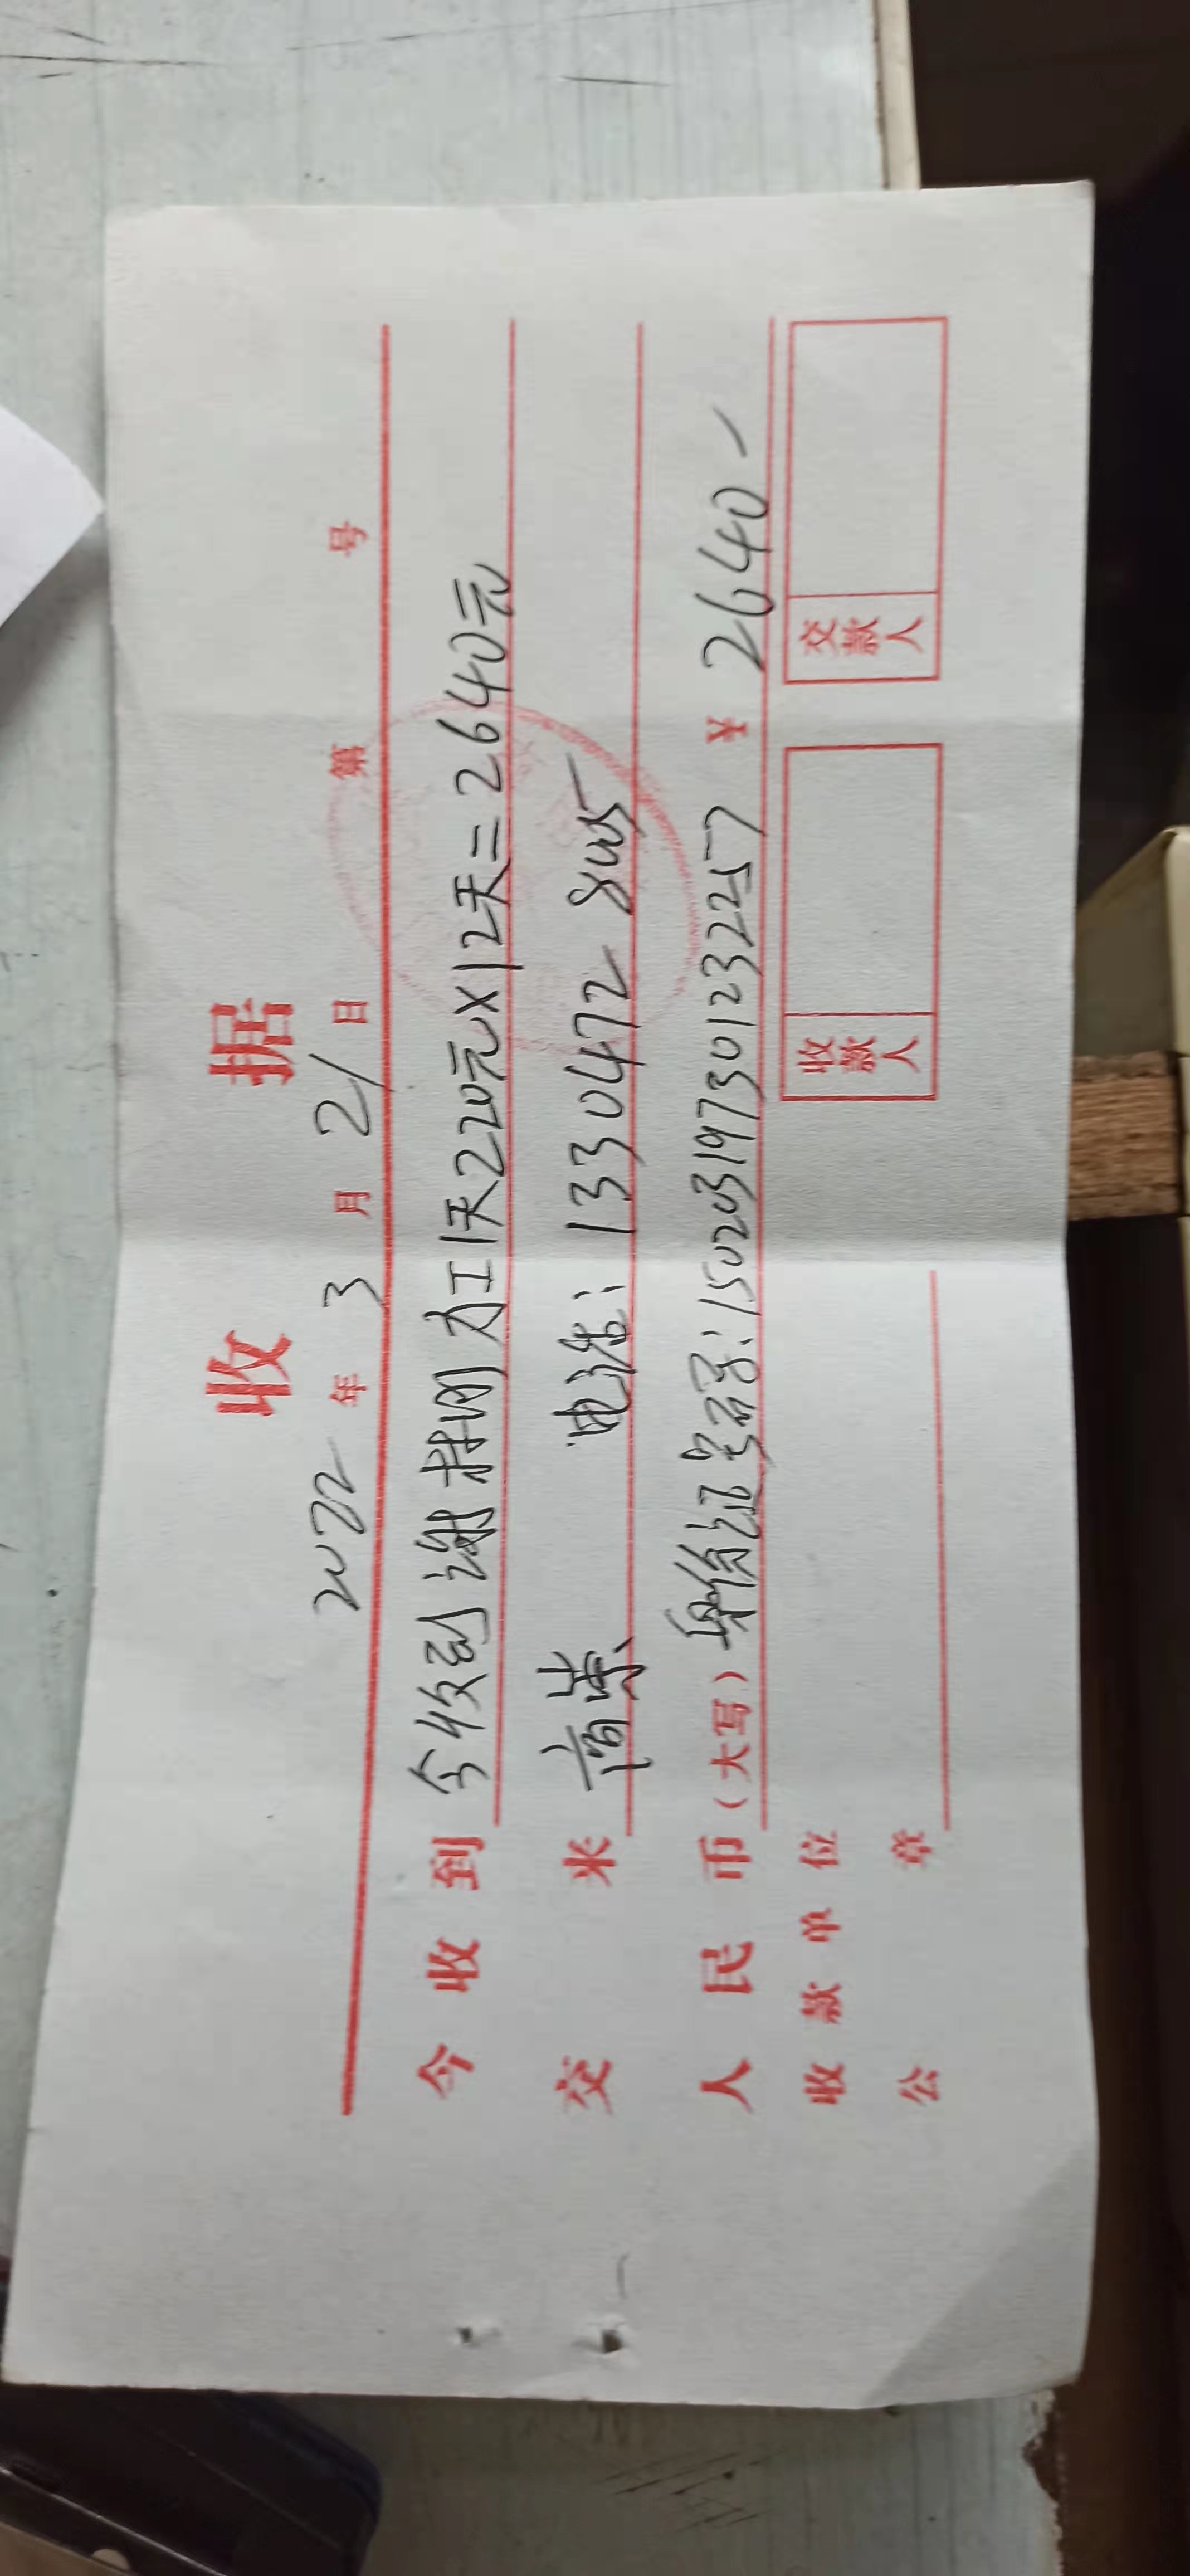 收 据
2022 年 3 月 21 日 第 号
今 收 到 今收到谢 力工1天220元×12天=2640元
交 来 高崇 电话:133 0472 8005
人 民 币（大写）身份证 号:150203197301232257 ¥ 2640-
收 款 单 位
公 章
收款人
交款人